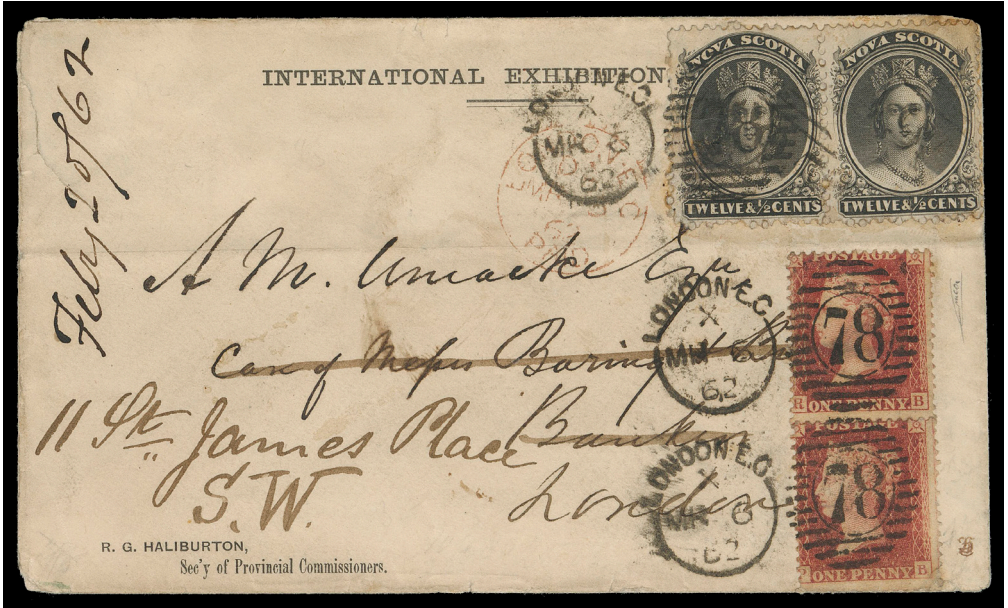 Feby 20/62
INTERNATIONAL EXHIBITION.
NOVA SCOTIA
TWELVE & ½ CENTS
NOVA SCOTIA
TWELVE & ½ CENTS
LONDON E.C.
X
MR 6
62
PAID
A M. Uniacke Esqr
Care of Messrs Baring
Bankers
London
11 St. James Place
S.W.
LONDON E.C.
X
MR 6
62
POSTAGE
78
R ONE PENNY B
LONDON E.C.
X
MR 6
62
POSTAGE
78
P ONE PENNY B
R. G. HALIBURTON,
Sec'y of Provincial Commissioners.